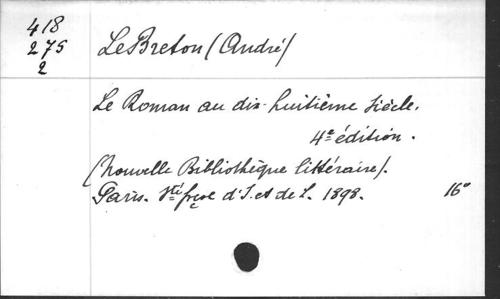 418
275
2
LeBreton (André)
Le Roman au dix-huitième siècle.
4e édition.
(Nouvelle Bibliothèque littéraire).
Paris. Sté frçse d'I. et de L. 1898. 16°